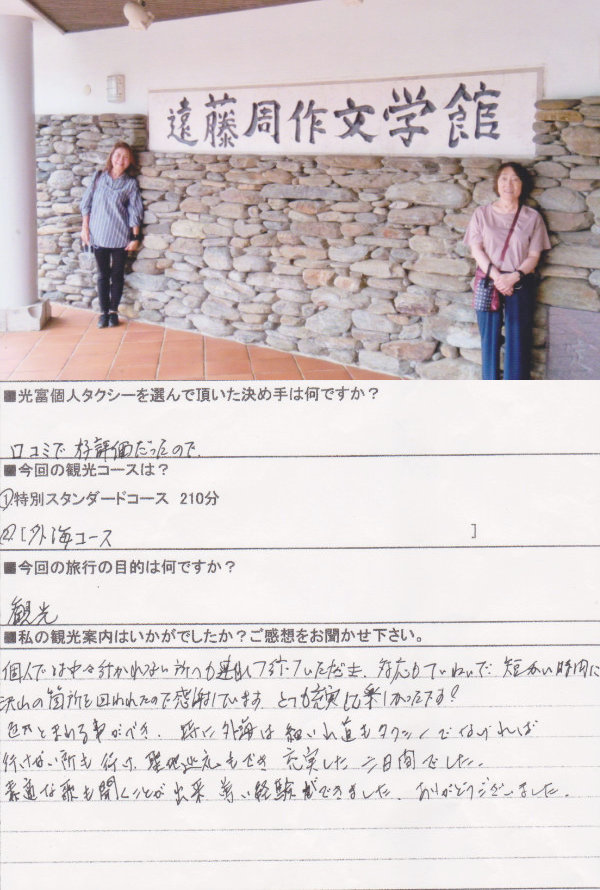 遠藤周作文学館
■光富個人タクシーを選んで頂いた決め手は何ですか？
口コミで好評価だったので、
■今回の観光コースは？
①.特別スタンダードコース 210分
②.[外海コース ]
■今回の旅行の目的は何ですか？
観光
■私の観光案内はいかがでしたか？ご感想をお聞かせ下さい。
個人では中々行かれない所へも連れて行っていただき、対応もていねいで短かい時間に
沢山の箇所を回われたので感謝しています。とても充実し楽しかったです！
事ができ、特に外海は細い道もタクシーでなければ
行けない所も行け、聖地巡礼もでき充実した二日間でした。
素適な歌も聞くことが出来、尊い経験ができました。ありがとうございました。